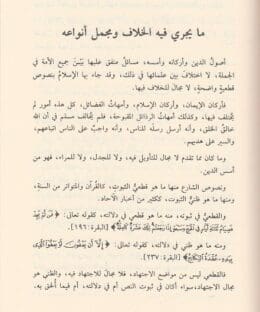 ما يجري فيه الخلاف ومجمل أنواعه
أصولُ الدين وأركانُه وأسسه، مسائلُ متفق عليها بينَ جميع الأمة في
الجملة، لا اختلافَ بين علمائها في ذلك، وقد جاء بها الإسلامُ بنصوص
قطعيةٍ واضحةٍ، لا مجالَ للخلاف فيها.
فأركان الإيمان، وأركان الإسلام، وأمهاتُ الفضائل، كل هذه أمور لم
يختلف فيها، وكذلك أمهاتُ الرذائل القبيحة، فلم يخالف مسلم في أن الله
خالقُ الخلق، وأنه أرسل رسله للناس، وأنه واجبٌ على الناس اتباعهم،
والسير على هديهم.
وما كان مما تقدم لا مجال للتأويل فيه، ولا للجدل، ولا للمراء، فهو من
أسس الدين.
ونصوص الشارع منها ما هو قطعيُّ الثبوتِ، كالقُرآن والمتواتر من السنةِ،
ومنها ما هو ظنيٌّ، ككثيرٍ من أخبار الآحاد.
والقطعيُّ في ثبوته، منه ما هو قطعي في دلالته، كقوله تعالى: ﴿فَمَن لَّمْ يَجِدْ
فَصِيَامُ ثَلَاثَةِ أَيَّامٍ فِي الْحَجِّ وَسَبْعَةٍ إِذَا رَجَعْتُمْ تِلْكَ عَشَرَةٌ كَامِلَةٌ﴾ [البقرة: ١٩٦].
ومنه ما هو ظني في دلالته، كقوله تعالى: ﴿إِلَّا أَن يَعْفُونَ أَوْ يَعْفُوَ الَّذِي
بِيَدِهِ عُقْدَةُ النِّكَاحِ﴾ [البقرة: ٢٣٧].
فالقطعي ليس من مواضع الاجتهاد، فلا مجالَ للاجتهاد فيه، والظني هو
مجال الاجتهاد، سواء أكان في ثبوت النص أم في دلالته، أم فيما أُلحق به.